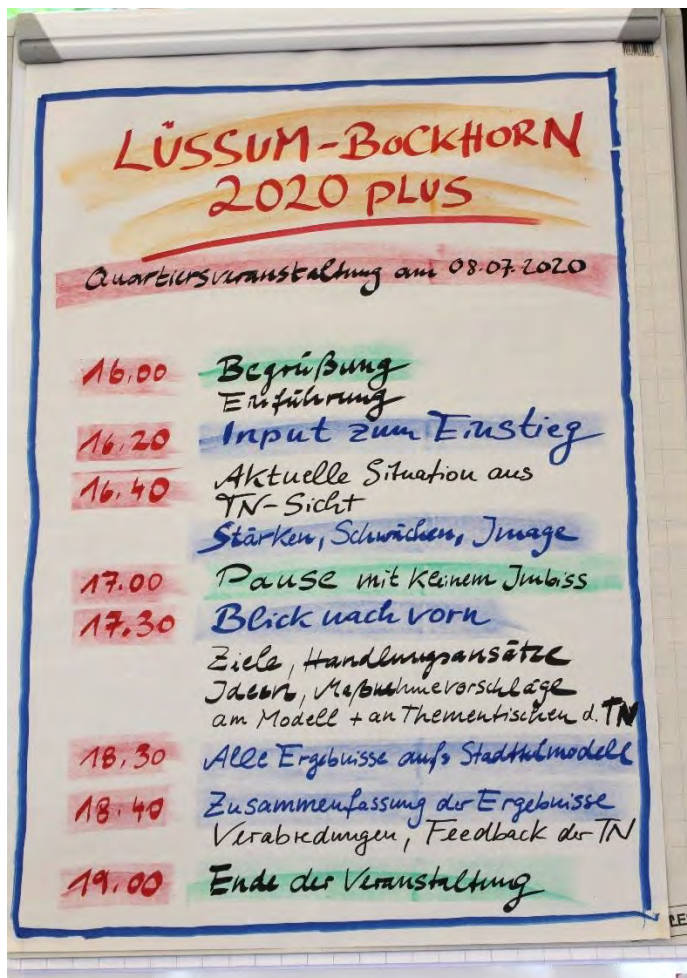 LÜSSUM-BOCKHORN
2020 PLUS
Quartiersveranstaltung am 08.07.2020
16.00 Begrüßung
Einführung
16.20 Input zum Einstieg
16.40 Aktuelle Situation aus
TN-Sicht
Stärken, Schwächen, Image
17.00 Pause mit keinem Imbiss
17.30 Blick nach vorn
Ziele, Handlungsansätze
Ideen, Maßnahmevorschläge
am Modell + an Thementischen d. TN
18.30 Alle Ergebnisse aufs Stadtteilmodell
18.40 Zusammenfassung der Ergebnisse
Verabredungen, Feedback der TN
19.00 Ende der Veranstaltung